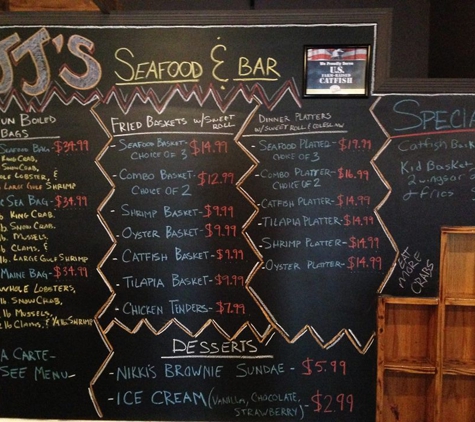 JJ'S
SEAFOOD & BAR
We Proudly Serve
U.S.
FARM-RAISED
CATFISH
UN BOILED
BAGS
SEAFOOD BAG - $34.99
KING CRAB,
SNOW CRAB,
WHOLE LOBSTER, &
LARGE GULF SHRIMP
SEA BAG - $34.99
lb. KING CRAB,
lb. SNOW CRAB,
lb. MUSSELS,
lb. CLAMS, &
lb. LARGE GULF SHRIMP
MAINE BAG - $34.99
WHOLE LOBSTERS,
lb. SNOW CRAB,
lb. MUSSELS,
lb CLAMS, & 1/4 lb SHRIMP
A CARTE -
SEE MENU -
FRIED BASKETS w/ SWEET
ROLL
- SEAFOOD BASKET - $14.99
CHOICE OF 3
- COMBO BASKET - $12.99
CHOICE OF 2
- SHRIMP BASKET - $9.99
- OYSTER BASKET - $9.99
- CATFISH BASKET - $9.99
- TILAPIA BASKET - $9.99
- CHICKEN TENDERS - $7.99
DINNER PLATTERS
w/ SWEET ROLL & COLESLAW
- SEAFOOD PLATTER - $19.99
CHOICE OF 3
- COMBO PLATTER - $16.99
CHOICE OF 2
- CATFISH PLATTER - $14.99
- TILAPIA PLATTER - $14.99
- SHRIMP PLATTER - $14.99
- OYSTER PLATTER - $14.99
DESSERTS
- NIKKI'S BROWNIE SUNDAE - $5.99
- ICE CREAM (VANILLA, CHOCOLATE,
STRAWBERRY) - $2.99
SPECIA
Catfish Bask
Kid Basket
2 wings or
& fries
EAT
MORE
CRABS